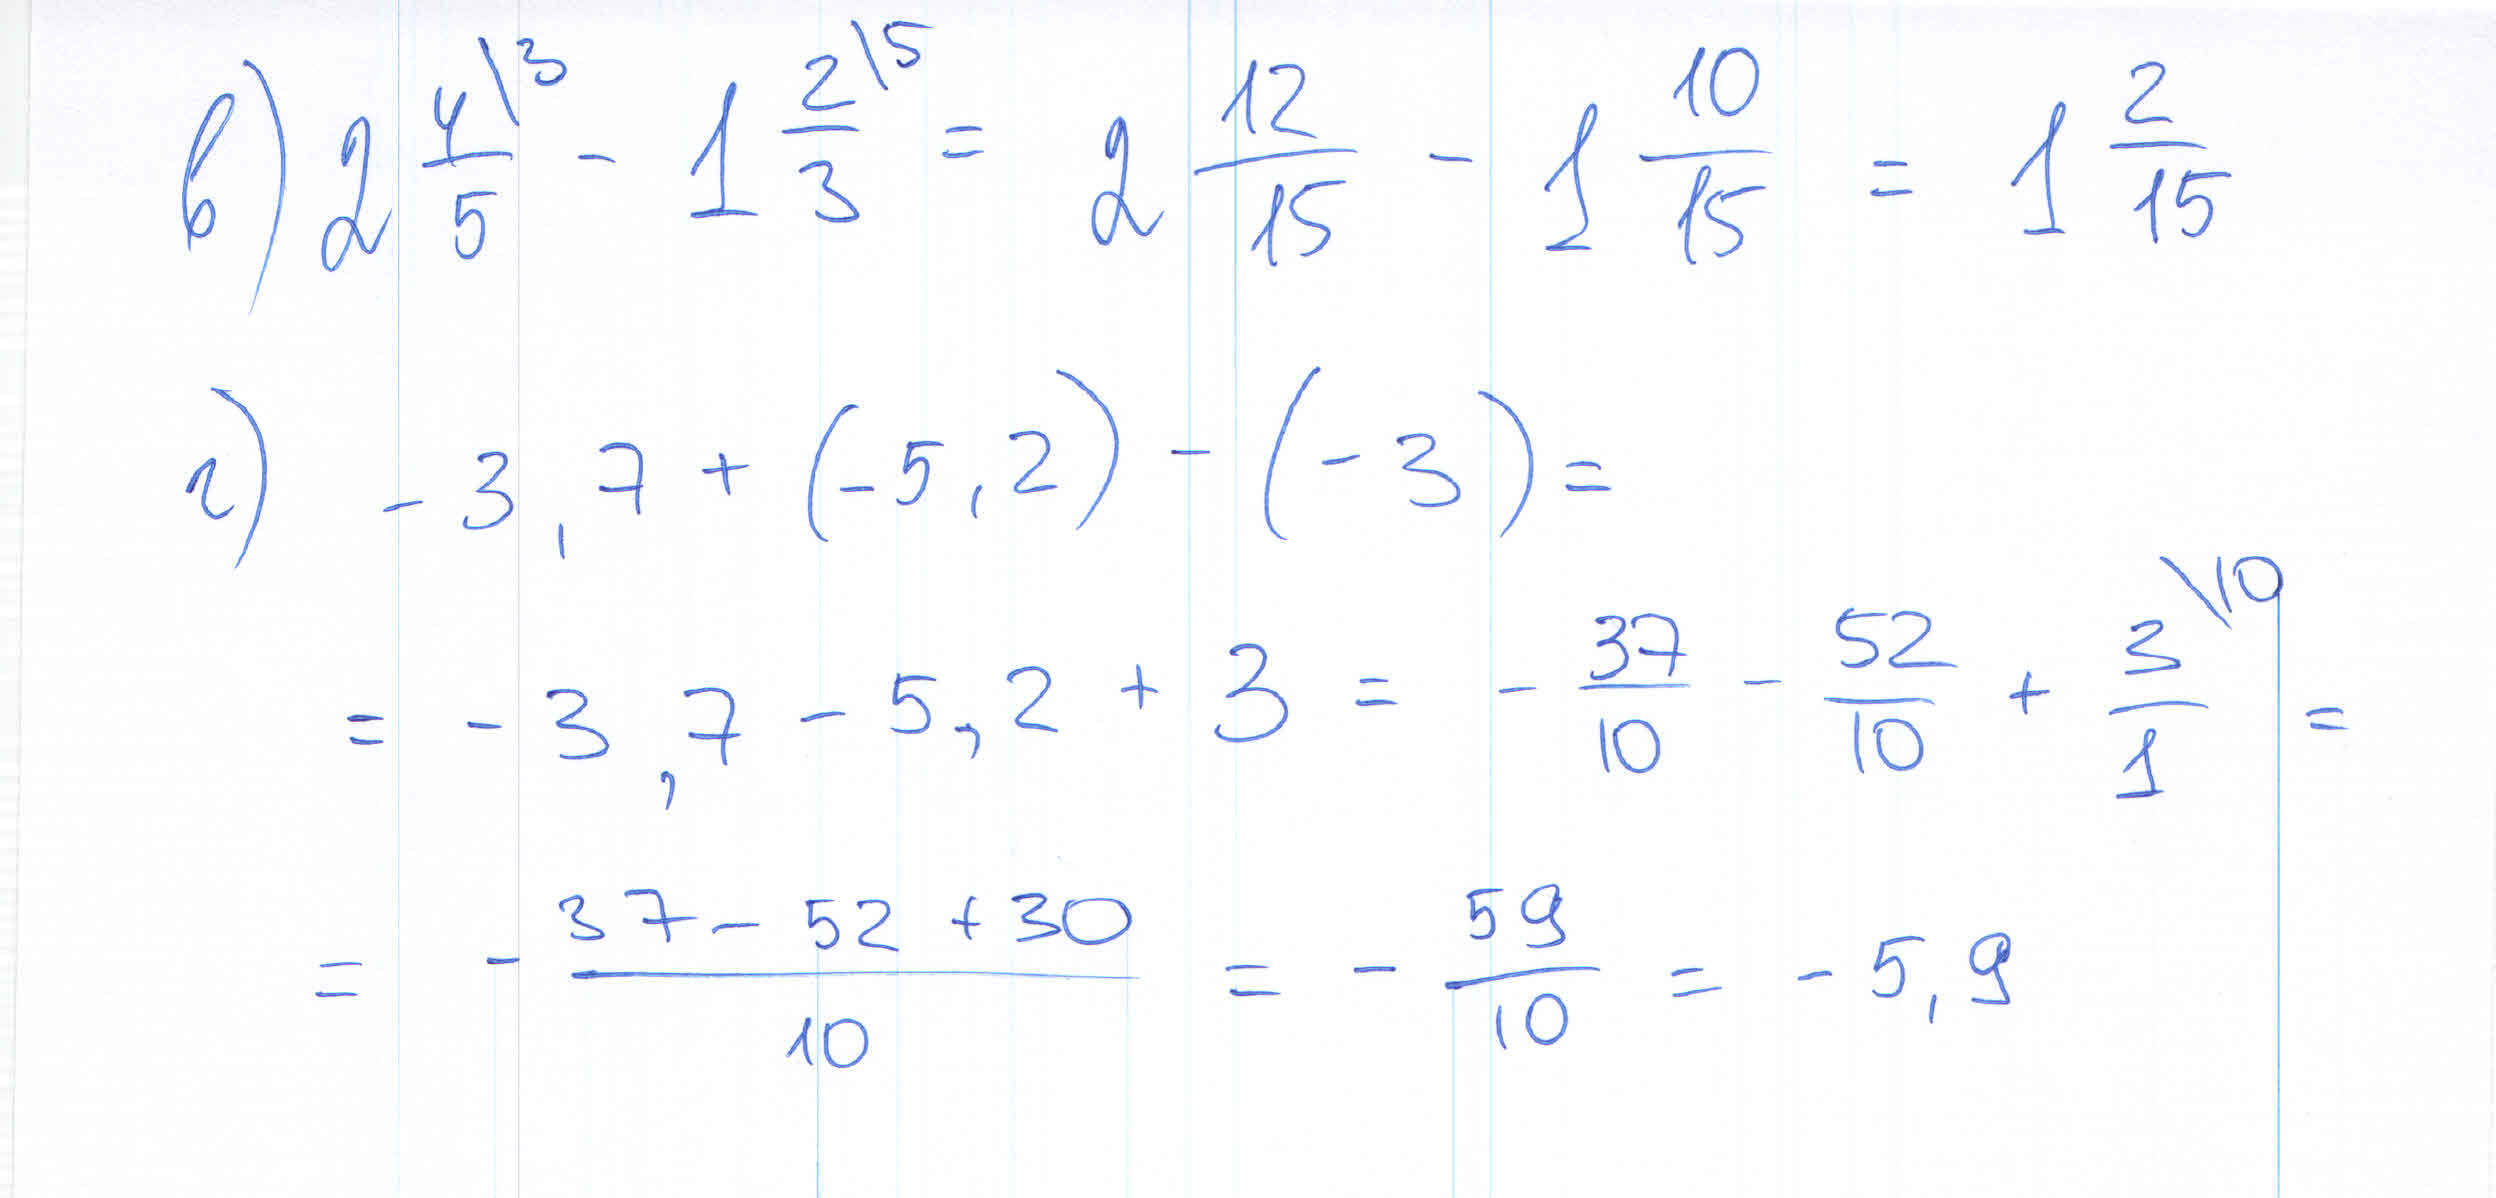 в) 2 4/5 \3 - 1 2/3 \5 = 2 12/15 - 1 10/15 = 1 2/15
г) - 3,7 + (-5,2) - (-3) =
= - 3,7 - 5,2 + 3 = - 37/10 - 52/10 + 3/1 \10 =
= - 37 - 52 + 30/10 = - 59/10 = - 5,9